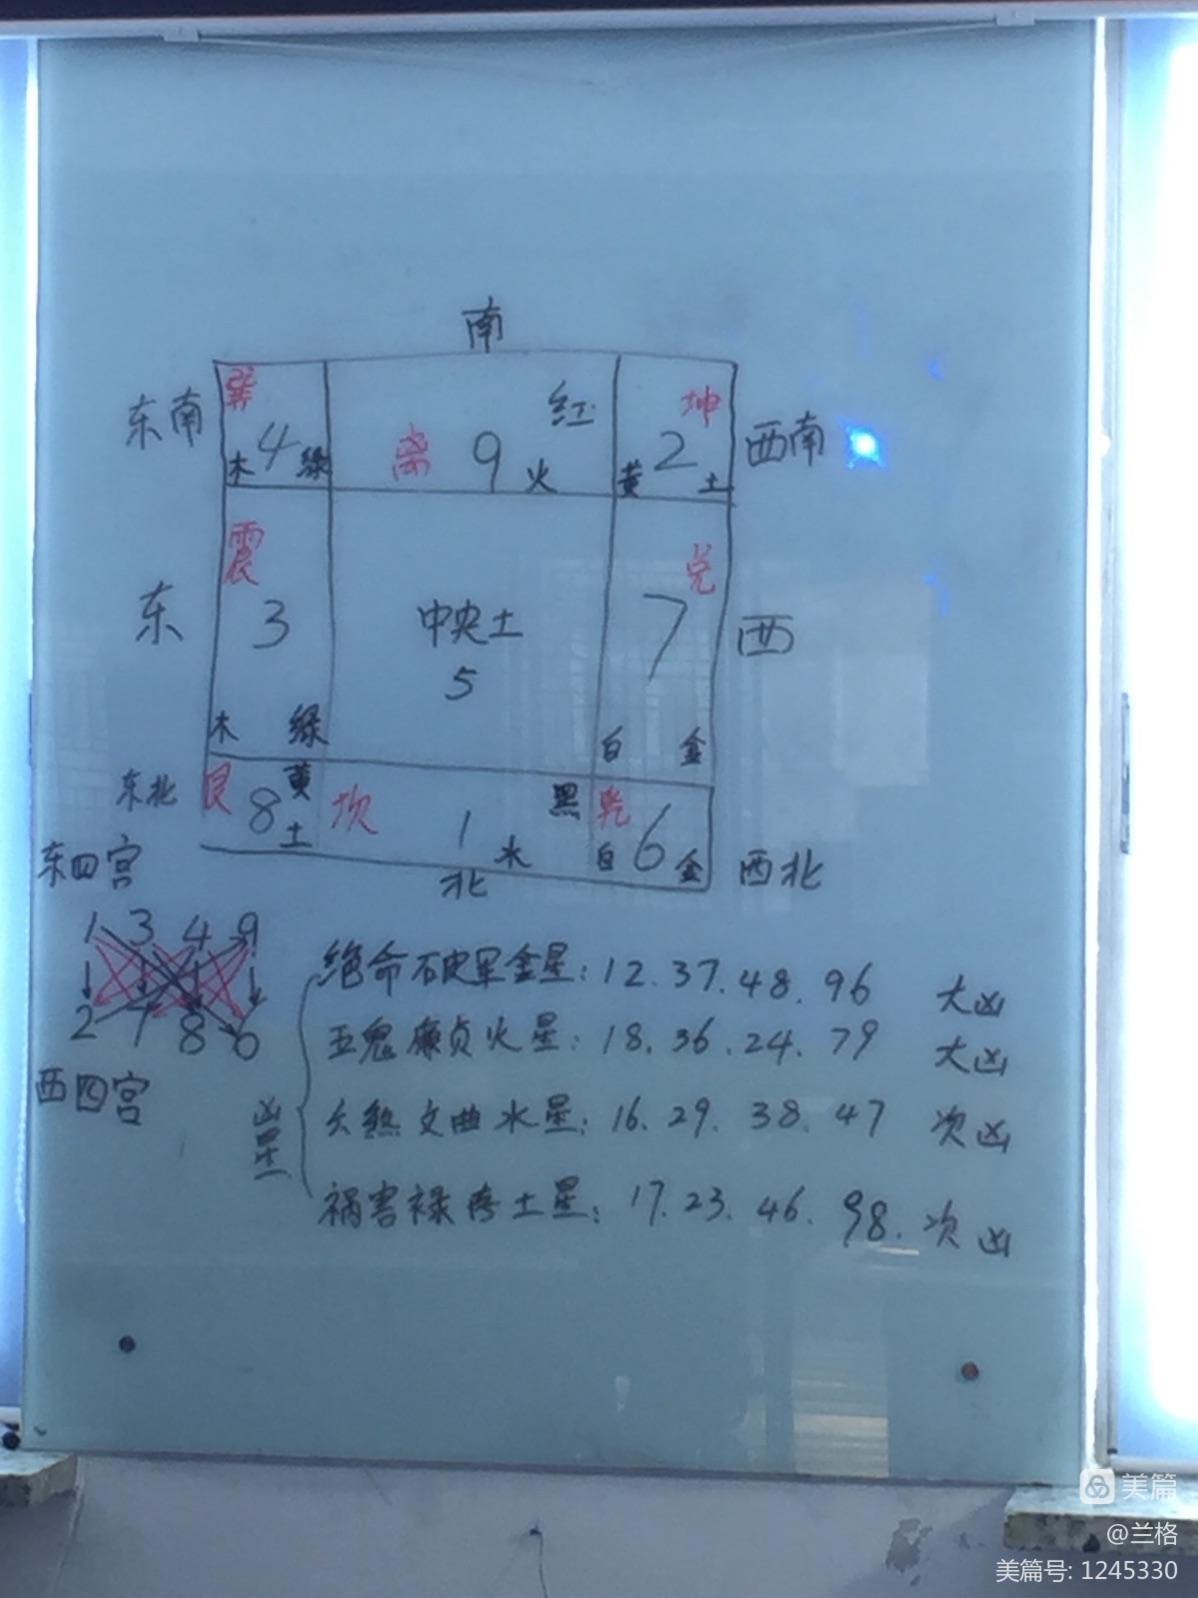 南
东南 巽 木 4 绿 离 9 火 红 黄 2 坤 土 西南
东 震 3 木 绿 中央土 5 兑 7 白 金 西
东北 艮 8 黄 土 坎 1 水 黑 乾 白 6 金 西北
北
东四宫
1 3 4 9
2 7 8 6
西四宫
凶星
绝命破军金星:12.37.48.96 大凶
五鬼廉贞火星:18.36.24.79 大凶
六煞文曲水星:16.29.38.47 次凶
祸害禄存土星:17.23.46.98.次凶
美篇
@兰格
美篇号: 1245330